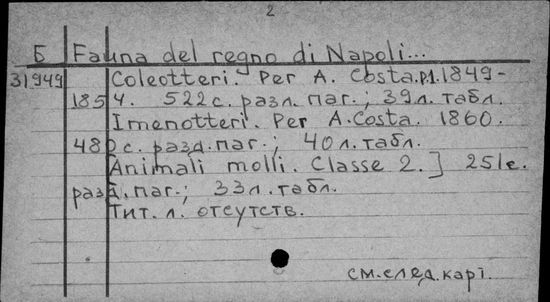 2
Б Fauna del regno di Napoli...
31949 Coleotteri. Per A. Costa. p1. 1849-
1854. 522 с. разл. паг.; 39 л. табл.
Imenotteri. Per A. Costa. 1860.
482 с. разд. паг.; 40 л. табл.
Animali molli. Classe 2.] 251 с.
разд. паг.; 33 л. табл.
Тит. л. отсутств.
см. след. карт.